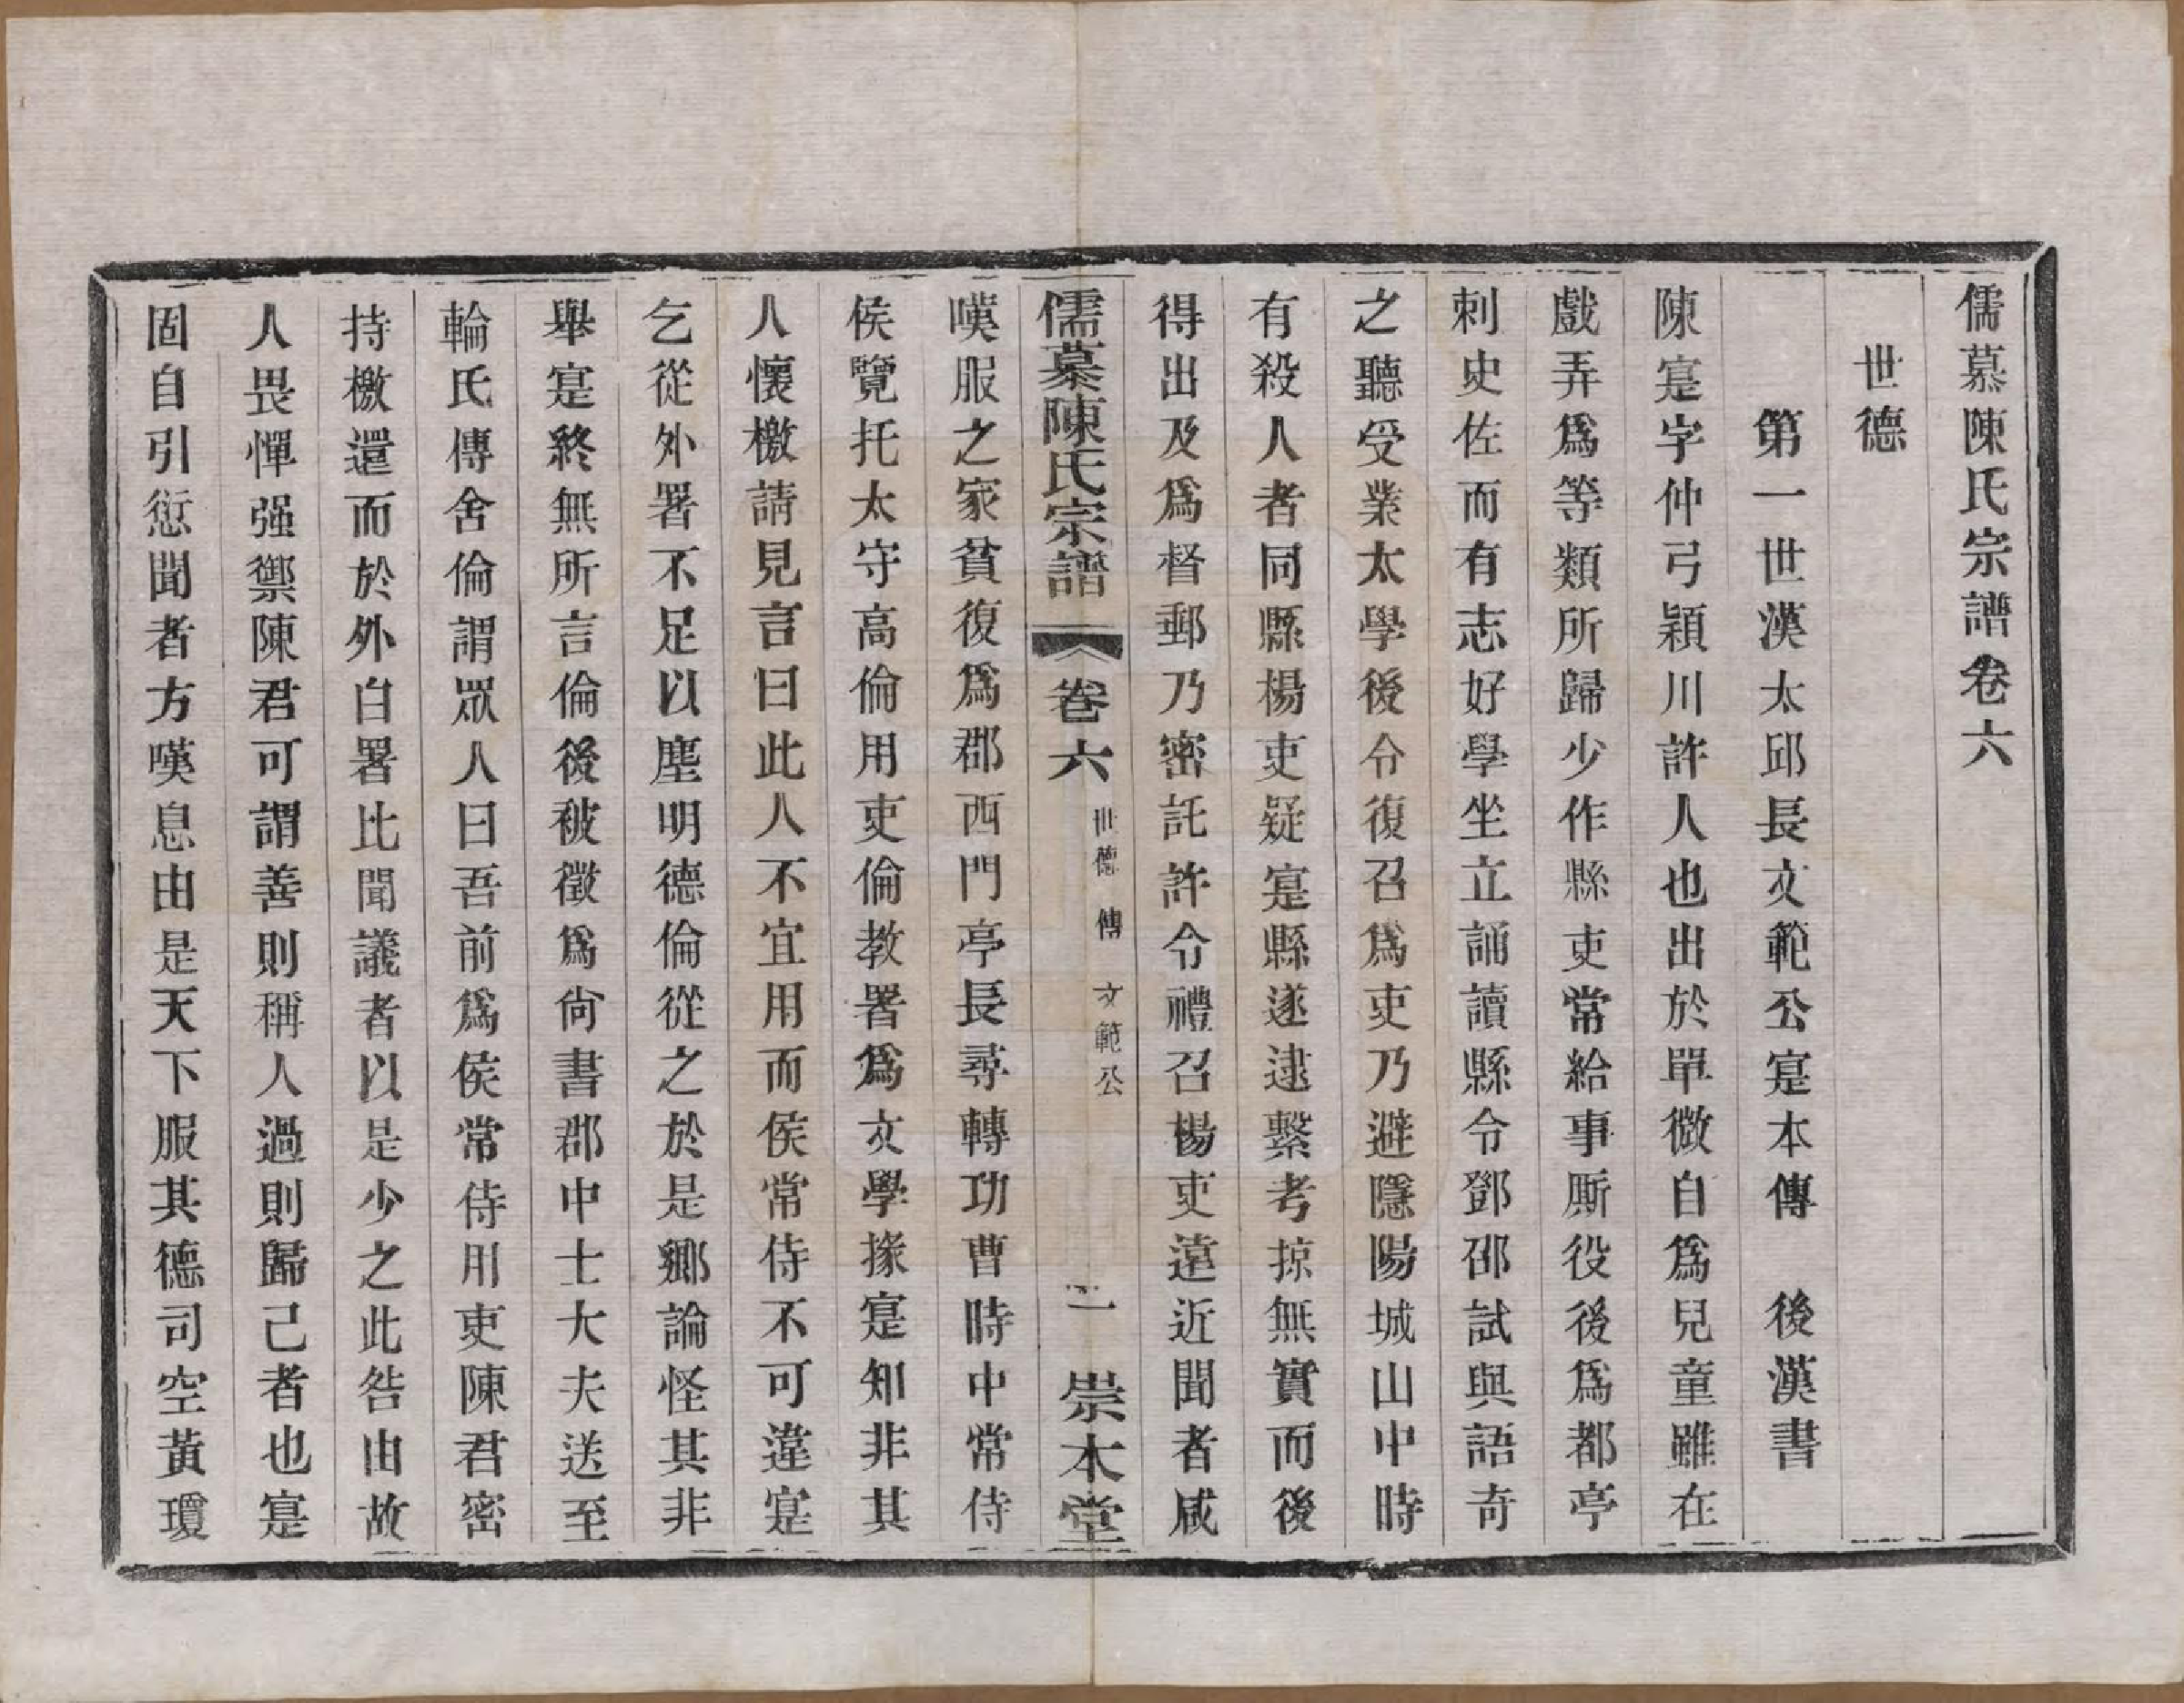 儒慕陳氏宗譜卷六
世德
第一世漢太邱長文範公寔本傳　後漢書
陳寔字仲弓潁川許人也出於單微自爲兒童雖在
戲弄爲等類所歸少作縣吏常給事厮役後爲都亭
刺史佐而有志好學坐立誦讀縣令鄧邵試與語奇
之聽受業太學後令復召爲吏乃避隱陽城山中時
有殺人者同縣楊吏疑寔縣遂逮繫考掠無實而後
得出及爲督郵乃密託許令禮召楊吏遠近聞者咸
儒慕陳氏宗譜　卷六　世德　傳　文範公　一　崇本堂
嘆服之家貧復爲郡西門亭長尋轉功曹時中常侍
侯覽托太守高倫用吏倫教署爲文學掾寔知非其
人懷檄請見言曰此人不宜用而侯常侍不可違寔
乞從外署不足以塵明德倫從之於是鄉論怪其非
舉寔終無所言倫後被徵爲尙書郡中士大夫送至
輪氏傳舍倫謂眾人曰吾前爲侯常侍用吏陳君密
持檄還而於外白署比聞議者以是少之此咎由故
人畏憚强禦陳君可謂善則稱人過則歸己者也寔
固自引愆聞者方嘆息由是天下服其德司空黃瓊